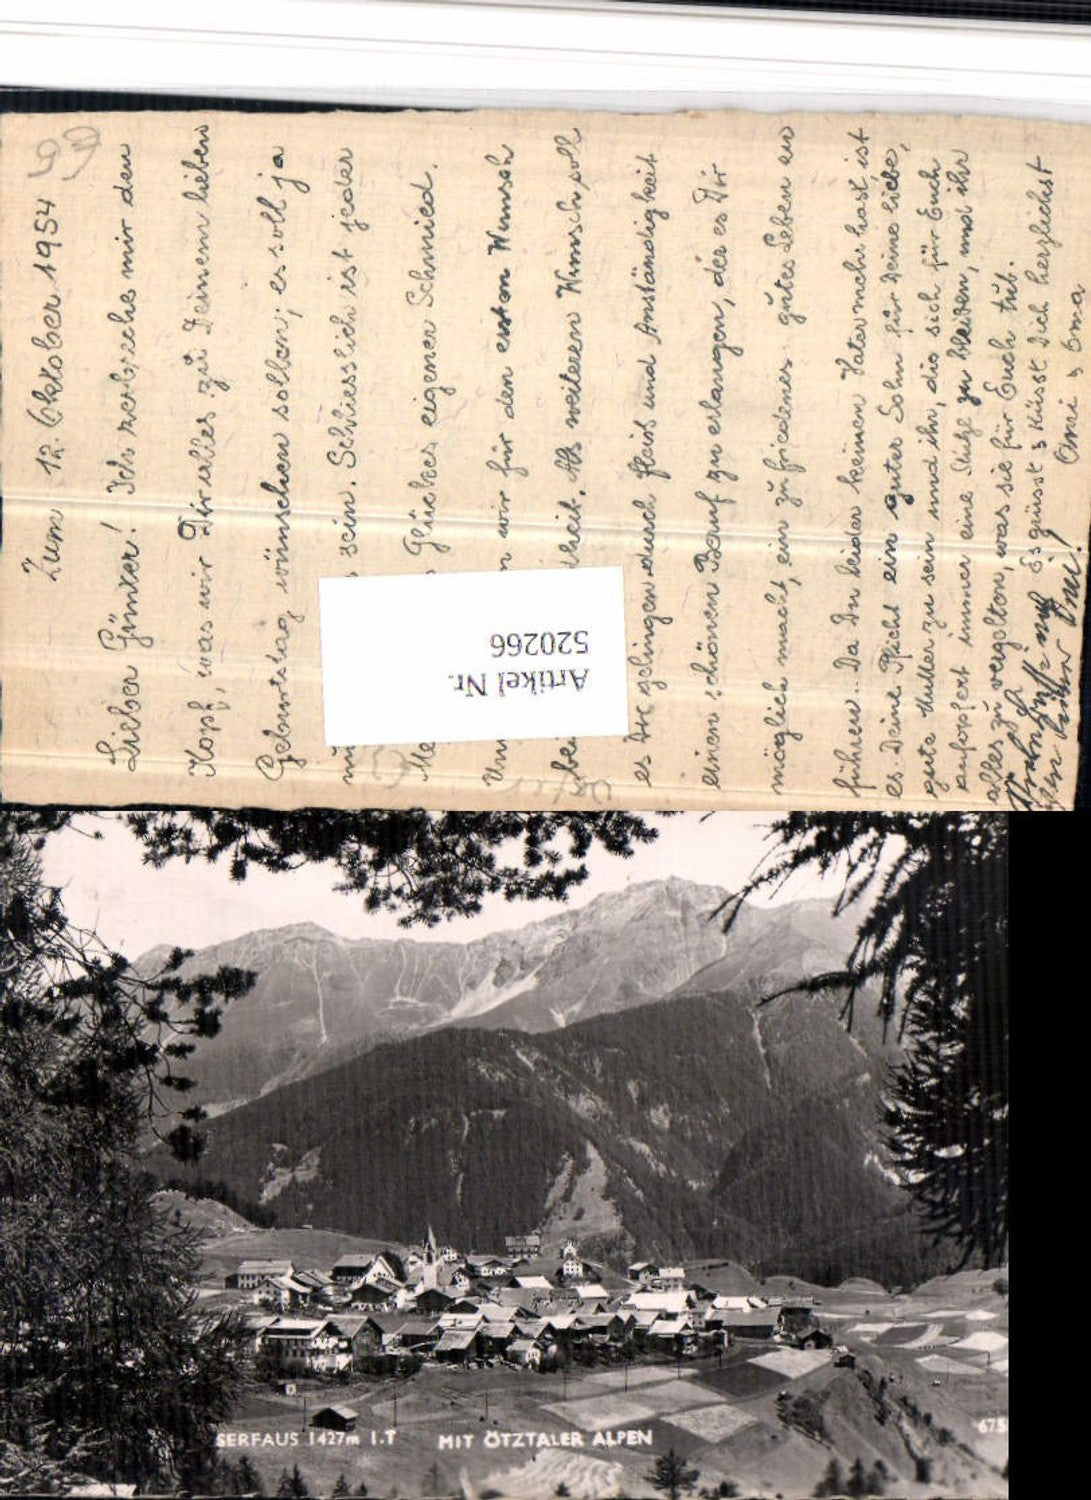 Zum 12. Oktober 1954
Lieber Günter! Ich zerbreche mir den
Kopf, was wir Dir alles zu Deinem lieben
Geburtstag wünschen sollen; es soll ja
sein. Schliesslich ist jeder
Glückes eigener Schmied.
wir für den ersten Wunsch
Als weiteren Wunsch soll
es Dir gelingen durch Fleiß und Anständigkeit
einen schönen Beruf zu erlangen, der es Dir
möglich macht, ein zufriedenes gutes Leben zu
führen. Da Du leider keinen Vater mehr hast ist
es Deine Pflicht ein guter Sohn für Deine liebe,
gute Mutter zu sein und ihr, die sich für Euch
aufopfert immer eine Stütze zu bleiben, und ihr
alles zu vergelten, was sie für Euch tut.
Es grüsst & küsst Dich herzlichst
Omi & Oma
Artikel Nr.
520266
SERFAUS 1427m I.T MIT ÖTZTALER ALPEN
675